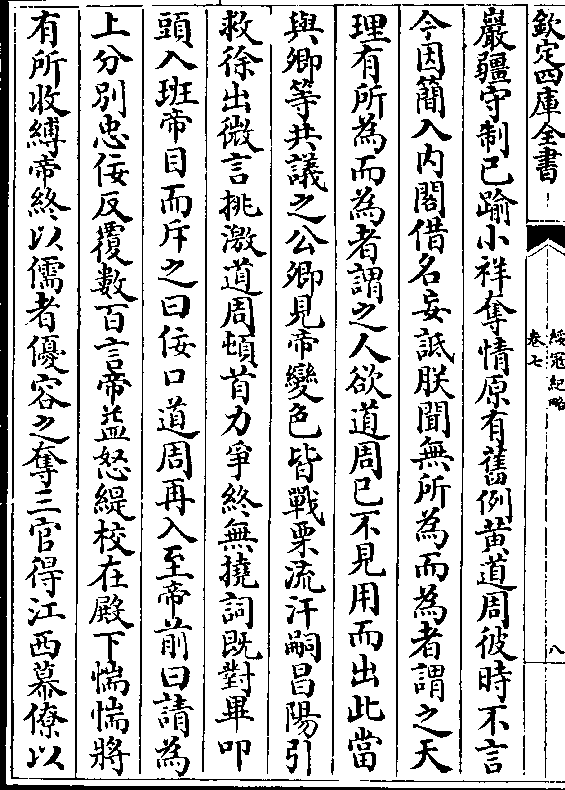 欽定四庫全書
綏寇紀略
卷七
八
嚴疆守制已踰小祥奪情原有舊例黄道周彼時不言
今因簡入内閣借名妄詆朕聞無所為而為者謂之天
理有所為而為者謂之人欲道周已不見用而出此當
與卿等共議之公卿見帝變色皆戰栗流汗嗣昌陽引
救徐出微言挑激道周頓首力爭終無撓詞既對畢叩
頭入班帝目而斥之曰佞口道周再入至帝前曰請為
上分别忠佞反覆數百言帝益怒緹校在殿下惴惴將
有所收縛帝終以儒者優容之奪三官得江西幕僚以